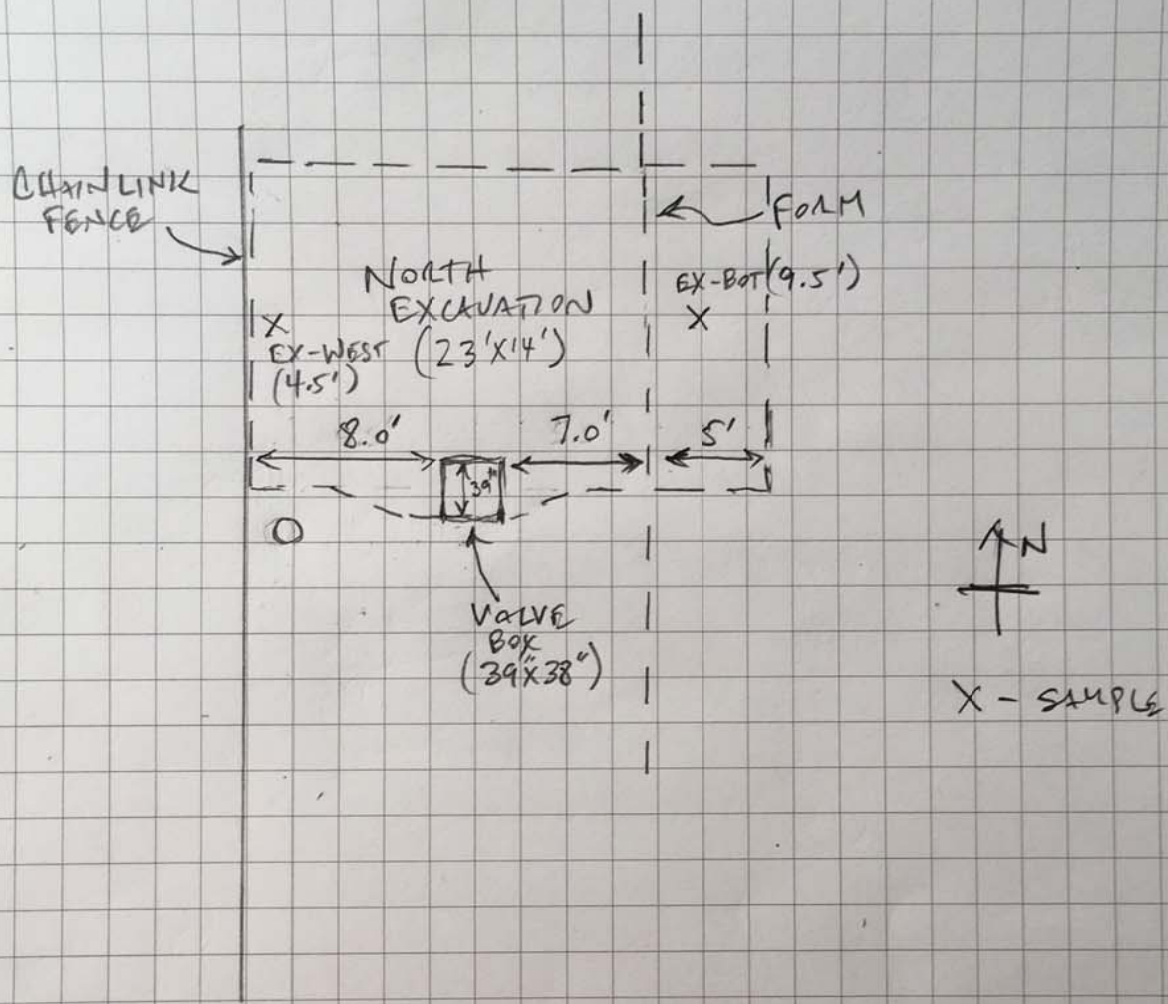 CHAINLINK
FENCE
FORM
NORTH
EXCAVATION
(23'X14')
EX-BOT (9.5')
X
X
EX-WEST
(4.5')
8.0'
7.0'
5'
39"
O
VALVE
BOX
(39"X38")
N
X - SAMPLE